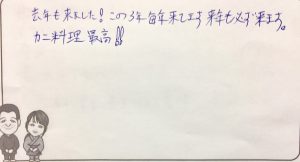 去年も来ました!この3年毎年来てます来年も必ず来ます。
カニ料理最高!!